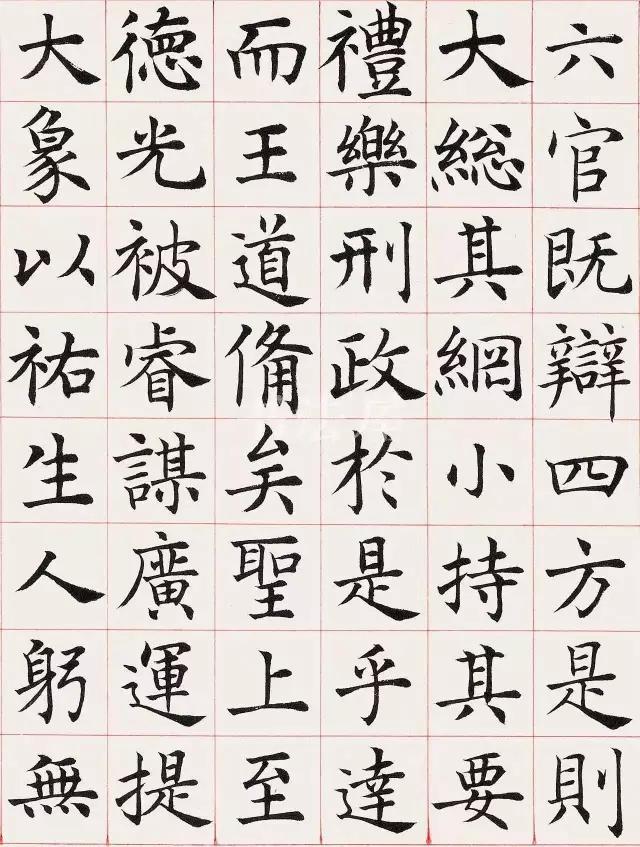 六官既辯四方是則
大總其網小持其要
禮樂刑政於是乎達
而王道俻矣聖上至
德光被睿謀廣運提
大象以祐生人躬無